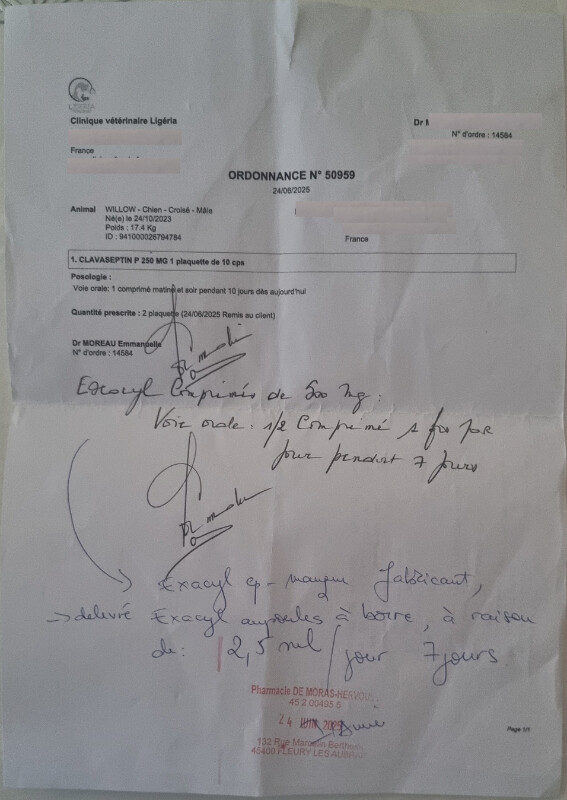 LIGERIA
Clinique vétérinaire Ligéria
Dr M
N° d'ordre : 14584
France
ORDONNANCE N° 50959
24/06/2025
Animal WILLOW - Chien - Croisé - Mâle
Né(e) le 24/10/2023
Poids : 17.4 Kg
ID : 941000026794784
France
1. CLAVASEPTIN P 250 MG 1 plaquette de 10 cps
Posologie :
Voie orale: 1 comprimé matin et soir pendant 10 jours dès aujourd'hui
Quantité prescrite : 2 plaquette (24/06/2025 Remis au client)
Dr MOREAU Emmanuelle
N° d'ordre : 14584
Exacyl Comprimés de 500 mg :
Voie orale : 1/2 Comprimé 1 fois par
jour pendant 7 jours
Exacyl cp - manque fabricant,
→ délivré Exacyl ampoules à boire, à raison
de : 2,5 ml / jour 7 jours.
Pharmacie DE MORAS-HERVOU
45 2 00495 8
24 JUIN 2025
132 Rue Marcelin Berthelot
45400 FLEURY LES AUBRAIS
Page 1/1